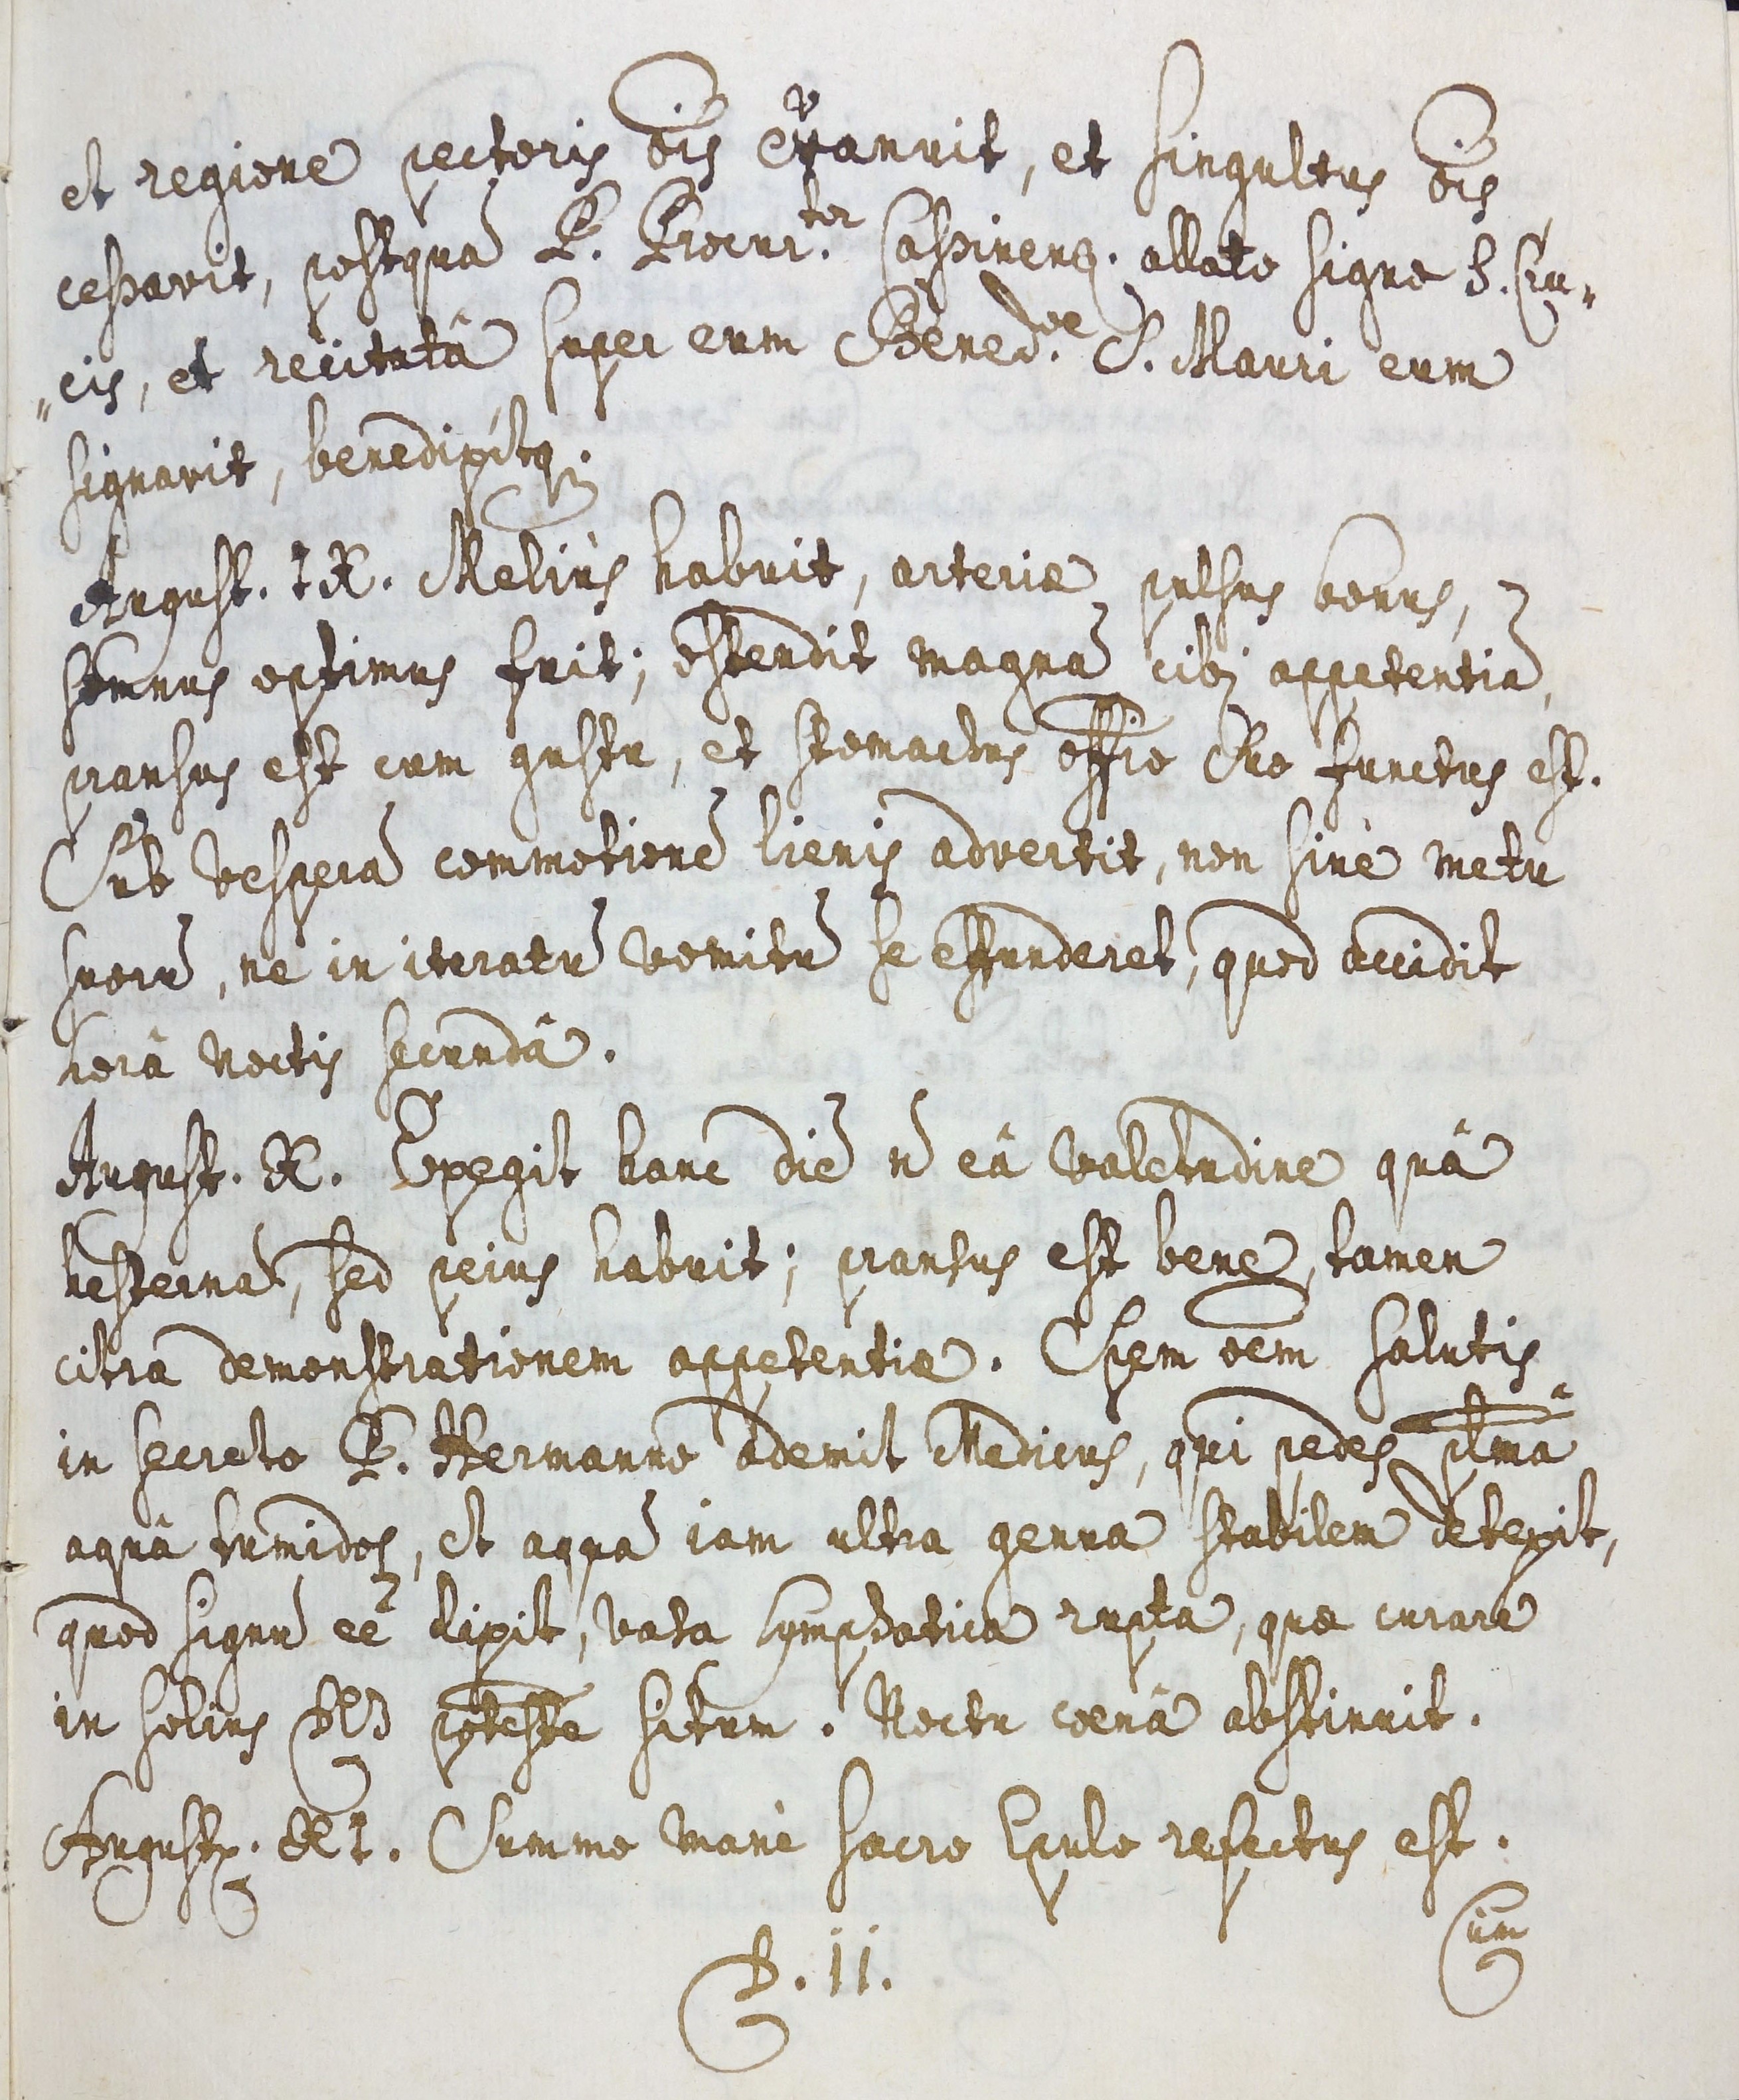 et regione pectoris ois evanuit, et singultus ois
cessavit, postquã P. Procur.tor Cassinens. allato signo S. Cru„
„cis, et recitatâ super eum Bened.oe S. Mauri eum
signavit, benedixitq;
August. IX. Meliùs habuit, arteriæ pulsus bonus,
somnus optimus fuit; ostendit magnã cibi appetentiã,
pransus est cum gustu, et stomachus offio suo functus est.
Sub vesperã commotionẽ lienis advertit, non sinè metu
suorũ, ne in iteratũ vomitũ se effunderet, quod accidit
horâ noctis secundâ.
August. X. Exegit hanc diẽ ñ eâ valetudine quâ
hesternã, sed peius habuit; pransus est bene, tamen
citra demonstrationem appetentiæ. Spem oem salutis
in secreto P. Hermanno ademit Medicus, qui pedes plmâ
aquâ tumidos, et aquã iam ultra genua stabilem detexit,
quod signũ eẽ dixit, vasa lymphatica rupta, quæ curare
in solius DEI poteste situm. Noctu coenâ abstinuit.
August. XI. Summo manè sacro Epulo refectus est.
B. ii.
Cum